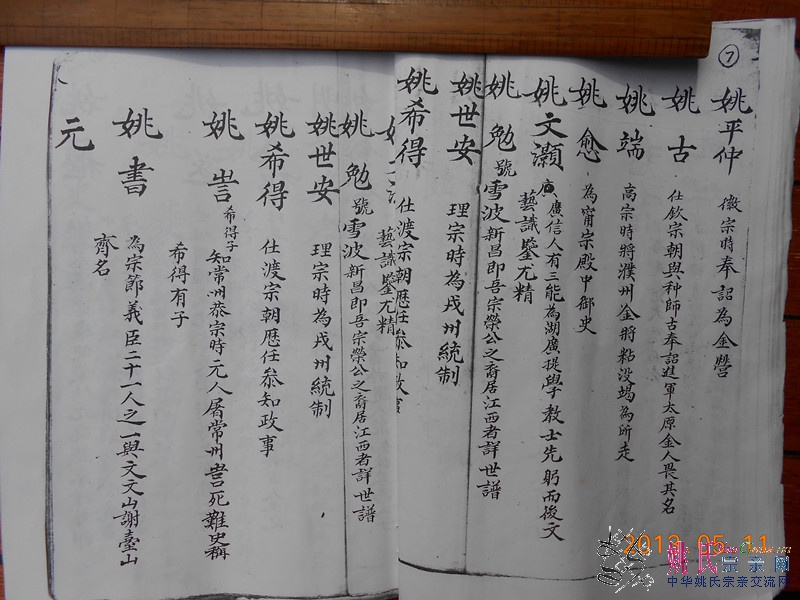 ⑦
姚平仲 徽宗時奉詔為金營
姚古 仕欽宗朝與种師古奉詔進軍太原金人畏其名
姚端 高宗時將濮州金將粘没竭為所走
姚愈 為甯宗殿中御史
姚文灝 廣信人有三能為湖廣提學教士先躬而後文
藝識鑒尤精
姚勉 號雪波新昌即吾宗榮公之裔居江西者詳世譜
姚世安 理宗時為戍州統制
姚希得 仕渡宗朝歷任叅知政
藝識鑒尤精
姚勉 號雪波新昌即吾宗榮公之裔居江西者詳世譜
姚世安 理宗時為戍州統制
姚希得 仕渡宗朝歷任叅知政事
姚訔 希得子 知常州恭宗時元人屠常州訔死難史稱
希得有子
姚書 為宗節義臣二十一人之一與文文山謝臺山
齊名
元
2013 05 11
姚氏宗亲网
中华姚氏宗亲交流网